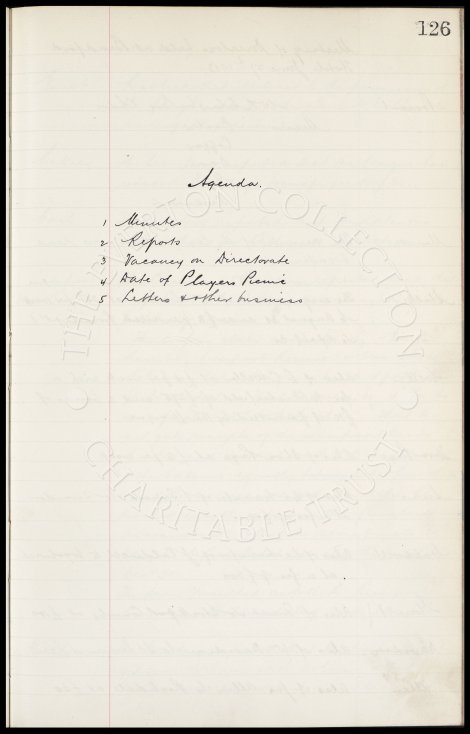 126
Agenda.
1 Minutes
2 Reports
3 Vacancy on Directorate
4 Date of Players Picnic
5 Letters & other business
THE EVERTON COLLECTION
CHARITABLE TRUST